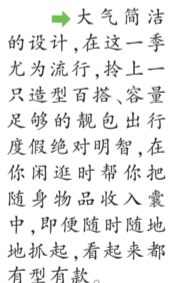 大气简洁
的设计,在这一季
尤为流行,拎上一
只造型百搭、容量
足够的靓包出行
度假绝对明智,在
你闲逛时帮你把
随身物品收入囊
中,即便随时随地
地抓起,看起来都
有型有款。